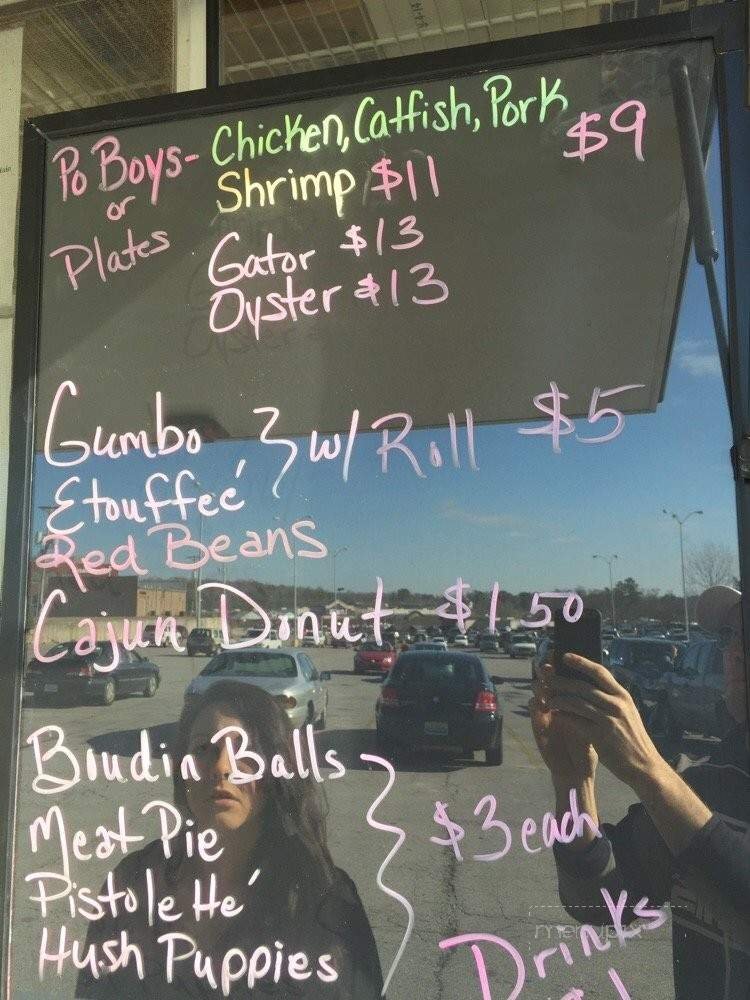 Po Boys- Chicken, Catfish, Pork $9
or Shrimp $11
Plates Gator $13
Oyster $13
Gumbo } w/ Roll $5
Etouffeé
Red Beans
Cajun Donut $1.50
Boudin Balls
Meat Pie } $3 each
Pistole He'
Hush Puppies
Drinks